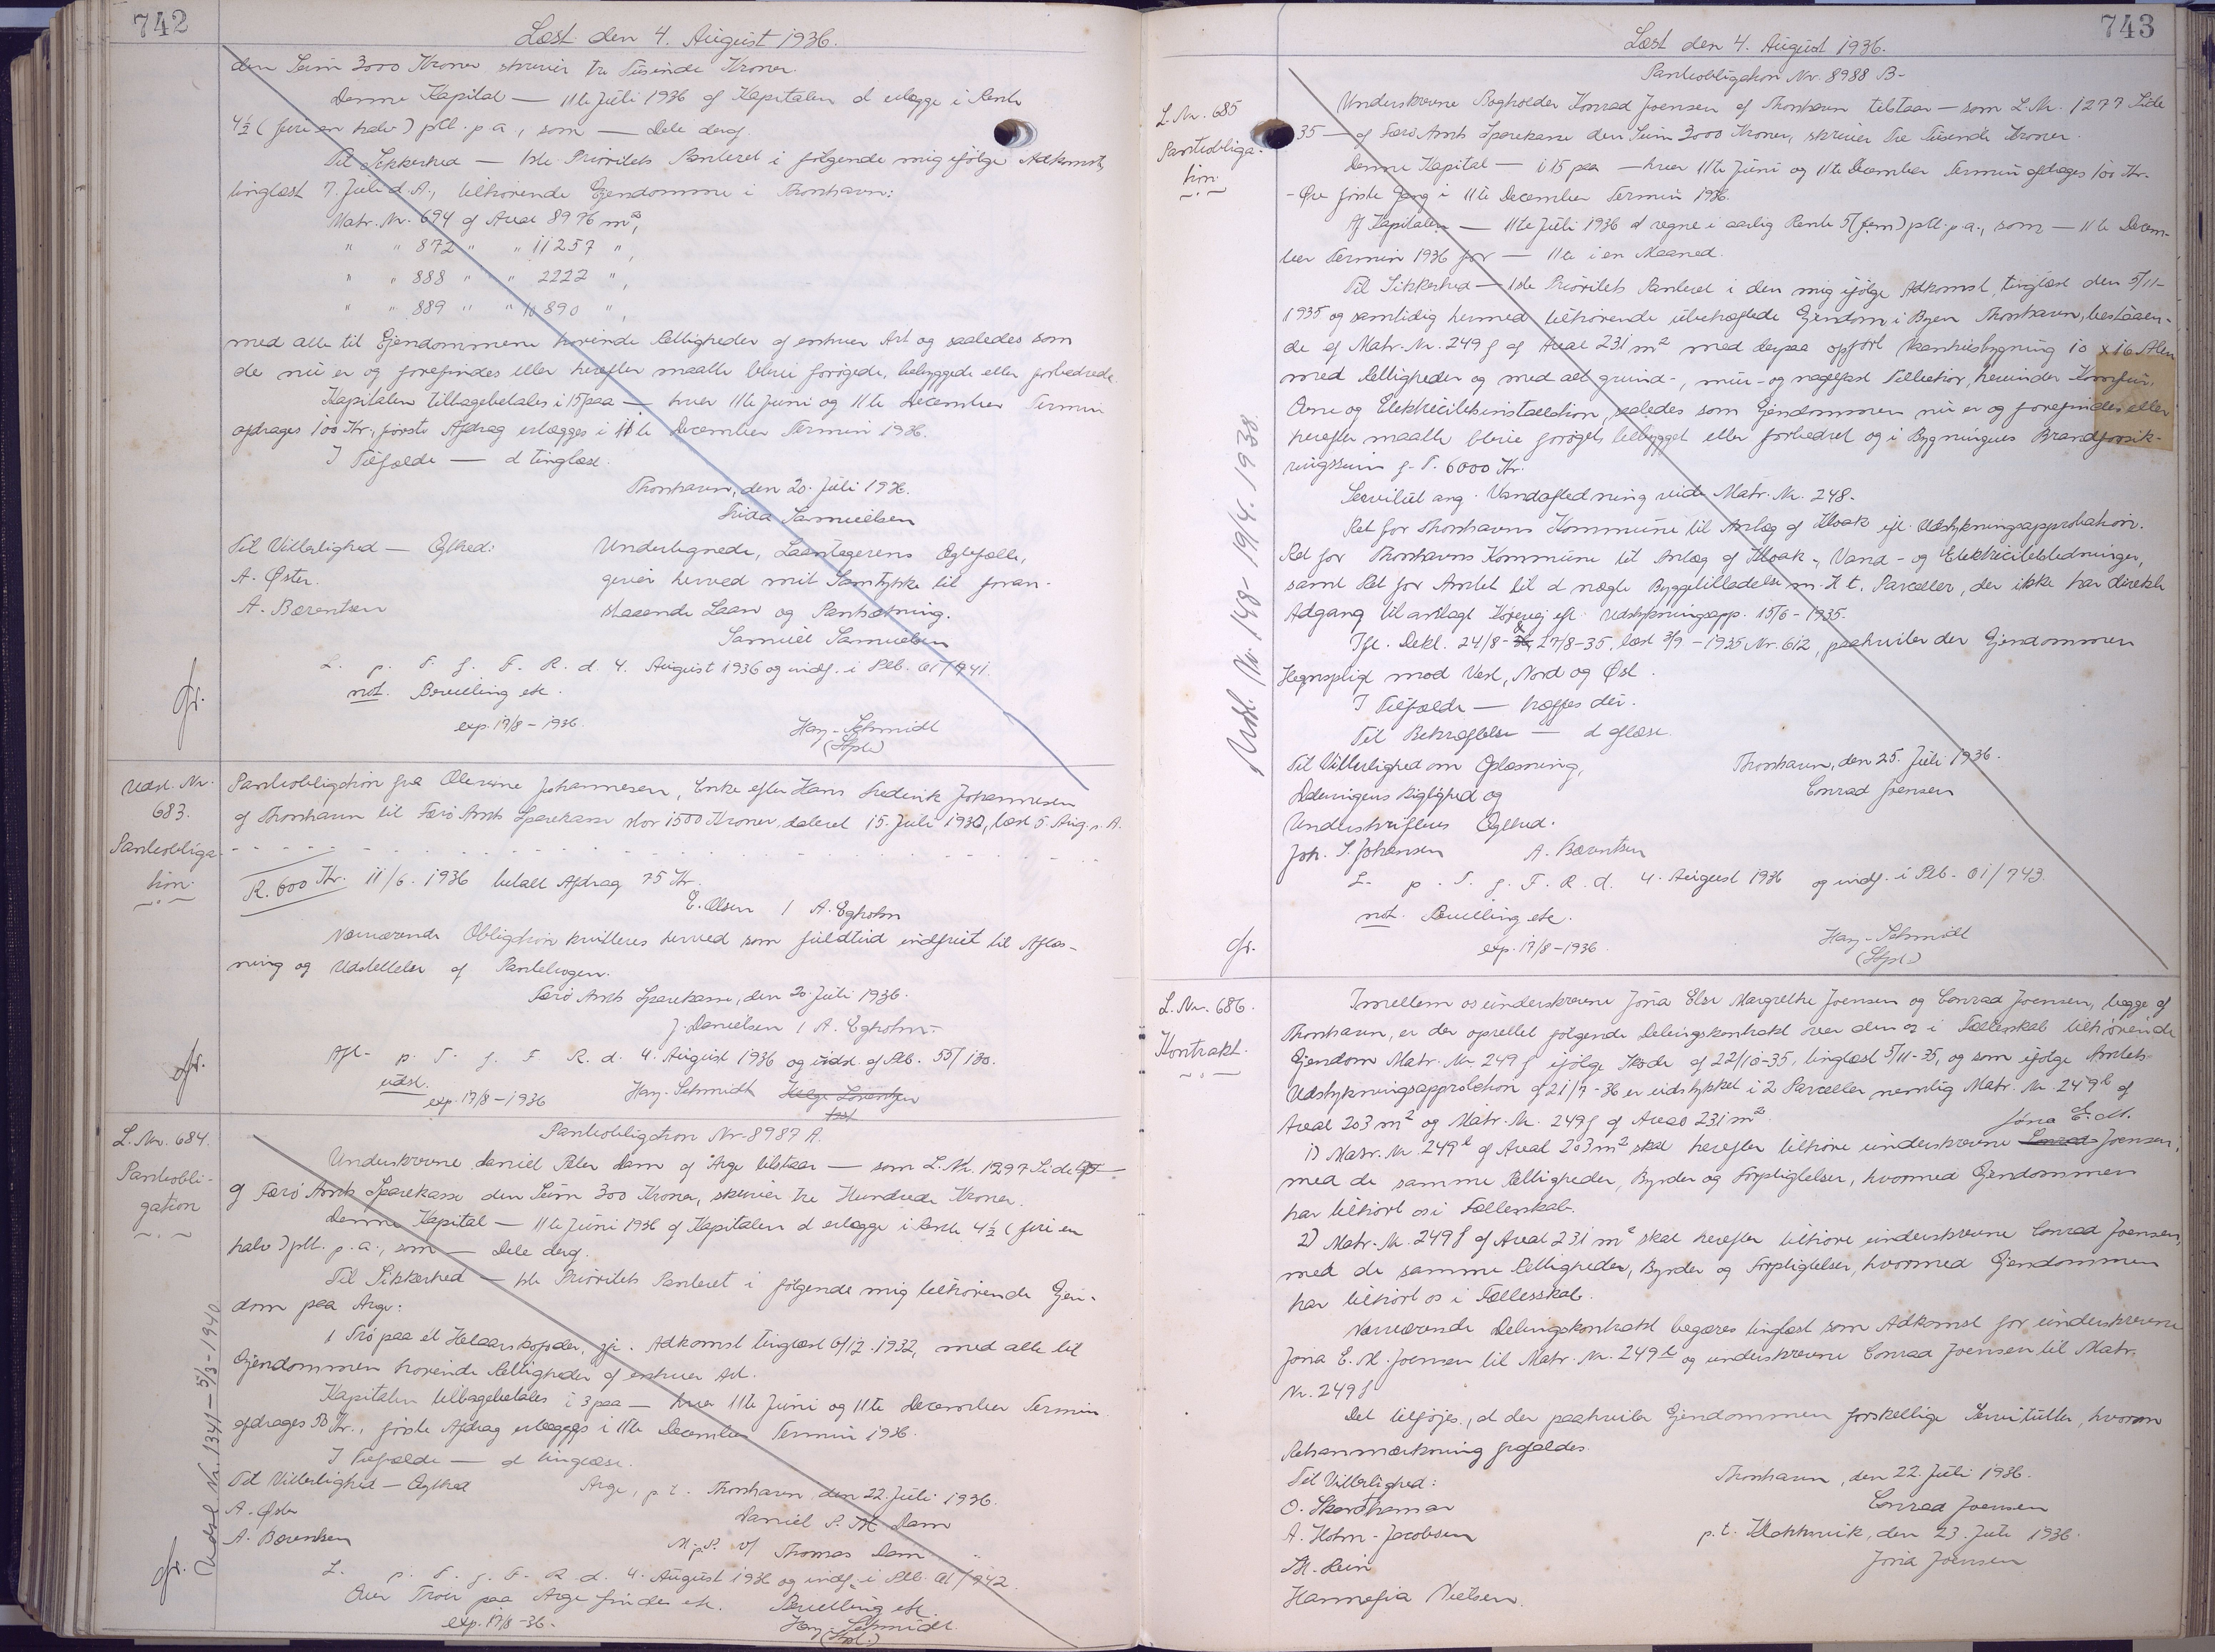 742
Læst den 4. August 1936.
den Sum 3000 Kroner skriver tre Tusinde Kroner.
Denne Kapital — 11te Juli 1936 af Kapitalen at erlægge i Rente
4½ (fire en halv) pCt. p.a., som — Dele deraf.
Til Sikkerhed — 1ste Prioritets Panteret i følgende mig ifølge Adkomst,
tinglæst 7. Juli d.A., tilhørende Ejendomme i Thorshavn:
Matr. Nr. 694 af Areal 8976 m²,
" " 872 " " 11257 ",
" " 888 " " 2222 ",
" " 889 " " 10890 ",
med alle til Ejendommene hørende Rettigheder af enhver Art og saaledes som
de nu er og forefindes eller herefter maatte blive forøgede, bebyggede eller forbedrede.
Kapitalen tilbagebetales i 15 paa — hver 11te Juni og 11te December Termin
afdrages 100 Kr., første Afdrag erlægges i 11te December Termin 1936.
I Tilfælde — at tinglæse.
Thorshavn, den 20. Juli 1936.
Frida Samuelsen
Til Vitterlighed — Ægthed:
A. Øster.
A. Bærentsen
Undertegnede, Laantagerens Ægtefælle,
giver herved mit Samtykke til foran-
staaende Laan og Pantsætning.
Samuel Samuelsen
L. p. T. f. F. R. d. 4. August 1936 og indf. i Ptb. 61/741.
not. Bevilling etc.
exp. 17/8 – 1936.
Hans Schmidt
(Stpl.)
Udsl. Nr.
683.
Pantobliga-
tion.
Pantobligation fra Olevine Johannesen, Enke efter Hans Frederik Johannesen
af Thorshavn til Færø Amts Sparekasse stor 1500 Kroner, dateret 15. Juli 1930, læst 5. Aug. s. A.
R. 600 Kr. 11/6. 1936 betalt Afdrag 75 Kr.
E. Olsen / A. Egholm
Nærværende Obligation kvitteres herved som fuldtud indfriet til Aflæs-
ning og Udslettelse af Pantebogen.
Færø Amts Sparekasse, den 20. Juli 1936.
J. Danielsen / A. Egholm.
Afl. p. T. f. F. R. d. 4. August 1936 og udsl. af Ptb. 55/180.
udsl.
exp. 17/8 – 1936
Hans Schmidt
L. Nr. 684.
Pantobli-
gation
Udsl. Nr. 1341 – 5/3 – 1940
Pantobligation Nr. 8987 A.
Underskrevne Daniel Peter Dam af Arge tilstaar — som L. Nr. 1297 Side
af Færø Amts Sparekasse den Sum 300 Kroner, skriver tre Hundrede Kroner.
Denne Kapital — 11te Juni 1936 af Kapitalen at erlægge i Rente 4½ (fire en
halv) pCt. p.a., som — Dele deraf.
Til Sikkerhed — 1ste Prioritets Panteret i følgende mig tilhørende Ejen-
dom paa Arge:
1 Trø paa et Helaarskofoder, jfr. Adkomst tinglæst 6/12. 1932, med alle til
Ejendommen hørende Rettigheder af enhver Art.
Kapitalen tilbagebetales i 3 paa — hver 11te Juni og 11te December Termin
afdrages 50 Kr., første Afdrag erlægges i 11te December Termin 1936.
I Tilfælde — at tinglæse.
Til Vitterlighed — Ægthed
A. Øster
A. Bærentsen
Arge, p.t. Thorshavn den 22. Juli 1936.
Daniel P. M. Dam
M.p.P. v/ Thomas Dam
L. p. T. f. F. R. d. 4. August 1936 og indf. i Ptb. 61/742.
Over Trøer paa Arge findes etc. Bevilling etc.
exp. 17/8 – 36.
Hans Schmidt
(Stpl.)
743
Læst den 4. August 1936.
L. Nr. 685
Pantobliga-
tion.
Udsl. Nr. 148 – 19/4. 1938.
Pantobligation Nr. 8988 B.
Underskrevne Bogholder Konrad Joensen af Thorshavn tilstaar — som L. Nr. 1277 Side
35 — af Færø Amts Sparekasse den Sum 3000 Kroner, skriver Tre Tusinde Kroner.
Denne Kapital — i 15 paa — hver 11te Juni og 11te December Termin afdrages 100 Kr.
– Øre første Gang i 11te December Termin 1936.
Af Kapitalen — 11te Juli 1936 at regne i aarlig Rente 5 (fem) pCt. p.a., som — 11te Decem-
ber Termin 1936 for — 11te i en Maaned.
Til Sikkerhed — 1ste Prioritets Panteret i den mig ifølge Adkomst, tinglæst den 5/11–
1935 og samtidig hermed tilhørende ubehæftede Ejendom i Byen Thorshavn, bestaaen-
de af Matr. Nr. 249f af Areal 231 m² med derpaa opført Vaanhusbygning 10 x 16 Alen
med Rettigheder og med alt grund-, mur- og nagelfast Tilbehør, herunder Komfur,
Ovne og Elektricitetsinstallation, saaledes som Ejendommen nu er og forefindes eller
herefter maatte blive forøget, bebygget eller forbedret og i Bygningens Brandforsik-
ringssum p.T. 6000 Kr.
Servitut ang. Vandafledning vide Matr. Nr. 248.
Ret for Thorshavns Kommune til Anlæg af Kloak ifl. Udstykningsapprobation.
Ret for Thorshavns Kommune til Anlæg af Kloak-, Vand- og Elektricitetsledninger,
samt Ret for Amtet til at nægte Byggetilladelse m.H.t. Parceller, der ikke har direkte
Adgang til anlagt Kørevej efl. Udstykningsapp. 15/6 – 1935.
Ifl. Dekl. 24/8 – & 27/8 – 35, læst 3/9 – 1935 Nr. 612, paahviler der Ejendommen
Hegnspligt mod Vest, Nord og Øst.
I Tilfælde — træffes der.
Til Bekræftelse — at aflæse.
Til Vitterlighed om Oplæsning,
Dateringens Rigtighed og
Underskriftens Ægthed.
Joh. S. Johansen A. Bærentsen
Thorshavn, den 25. Juli 1936.
Conrad Joensen
L. p. T. f. F. R. d. 4. August 1936 og indf. i Ptb. 61/743.
not. Bevilling etc.
exp. 17/8 – 1936
Hans Schmidt
(Stpl.)
L. Nr. 686.
Kontrakt.
Imellem os underskrevne Jóna Else Margrethe Joensen og Conrad Joensen, begge af
Thorshavn, er der oprettet følgende Delingskontrakt over den os i Fællesskab tilhørende
Ejendom Matr. Nr. 249f ifølge Skøde af 22/10 – 35, tinglæst 5/11 – 35, og som ifølge Amtets
Udstykningsapprobation af 21/7 – 36 er udstykket i 2 Parceller nemlig Matr. Nr. 249l af
Areal 203 m² og Matr. Nr. 249f af Areal 231 m².
1) Matr. Nr. 249l af Areal 203 m² skal herefter tilhøre underskrevne Jóna E. M. Joensen,
med de samme Rettigheder, Byrder og Forpligtelser, hvormed Ejendommen
har tilhørt os i Fællesskab.
2) Matr. Nr. 249f af Areal 231 m² skal herefter tilhøre underskrevne Conrad Joensen,
med de samme Rettigheder, Byrder og Forpligtelser, hvormed Ejendommen
har tilhørt os i Fællesskab.
Nærværende Delingskontrakt begæres tinglæst som Adkomst for underskrevne
Jóna E. M. Joensen til Matr. Nr. 249l og underskrevne Conrad Joensen til Matr.
Nr. 249f
Det tilføjes, at der paahviler Ejendommen forskellige Servitutter, hvorom
Retsanmærkning frafaldes.
Til Vitterlighed:
O. Skarðhamar
A. Holm-Jacobsen
M. Rein
Hannefia Nielsen.
Thorshavn, den 22. Juli 1936.
Conrad Joensen
p.t. Klakksvik, den 23. Juli 1936.
Jóna Joensen